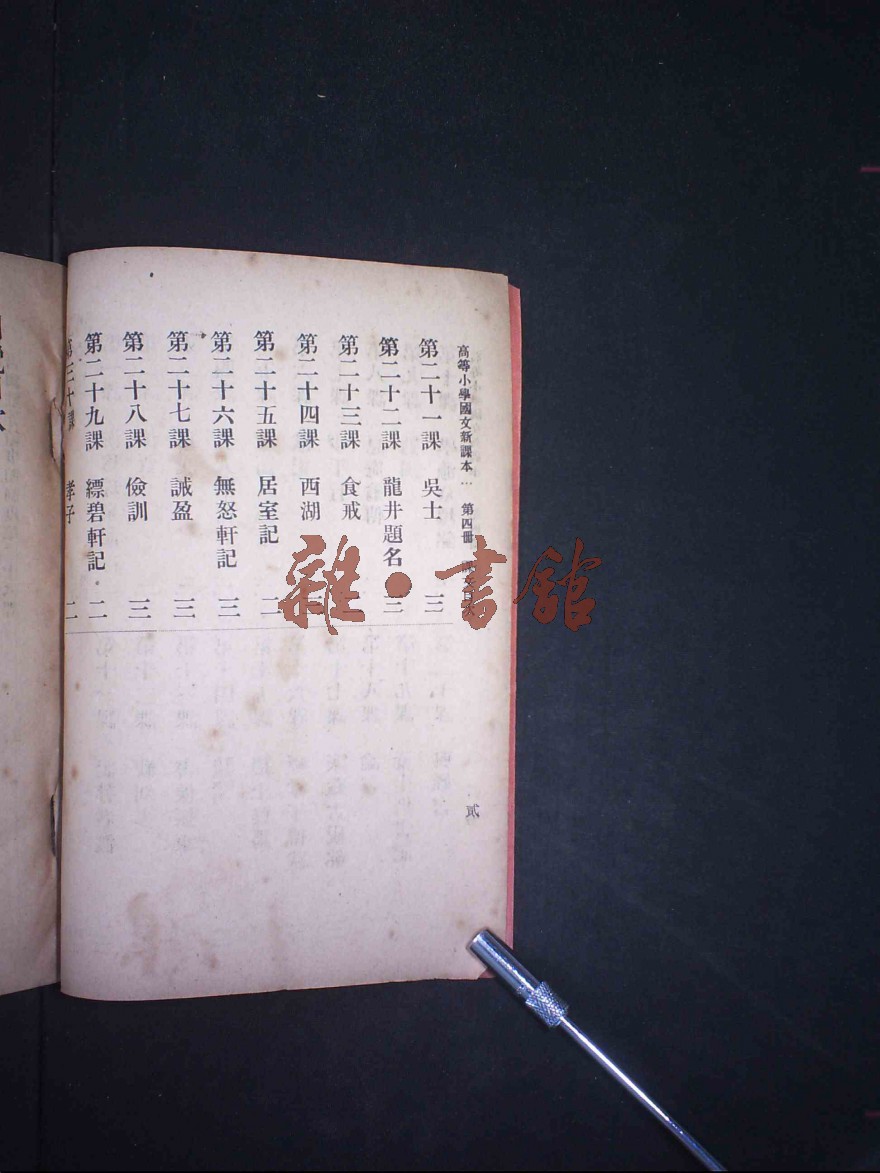 高等小學國文新課本… 第四冊
第二十一課 吳士 三
第二十二課 龍井題名 三
第二十三課 食戒
第二十四課 西湖
第二十五課 居室記 二
第二十六課 無怒軒記 三
第二十七課 誡盈 三
第二十八課 儉訓 三
第二十九課 縹碧軒記 二
第三十課 孝子 二
貳
雜·書館